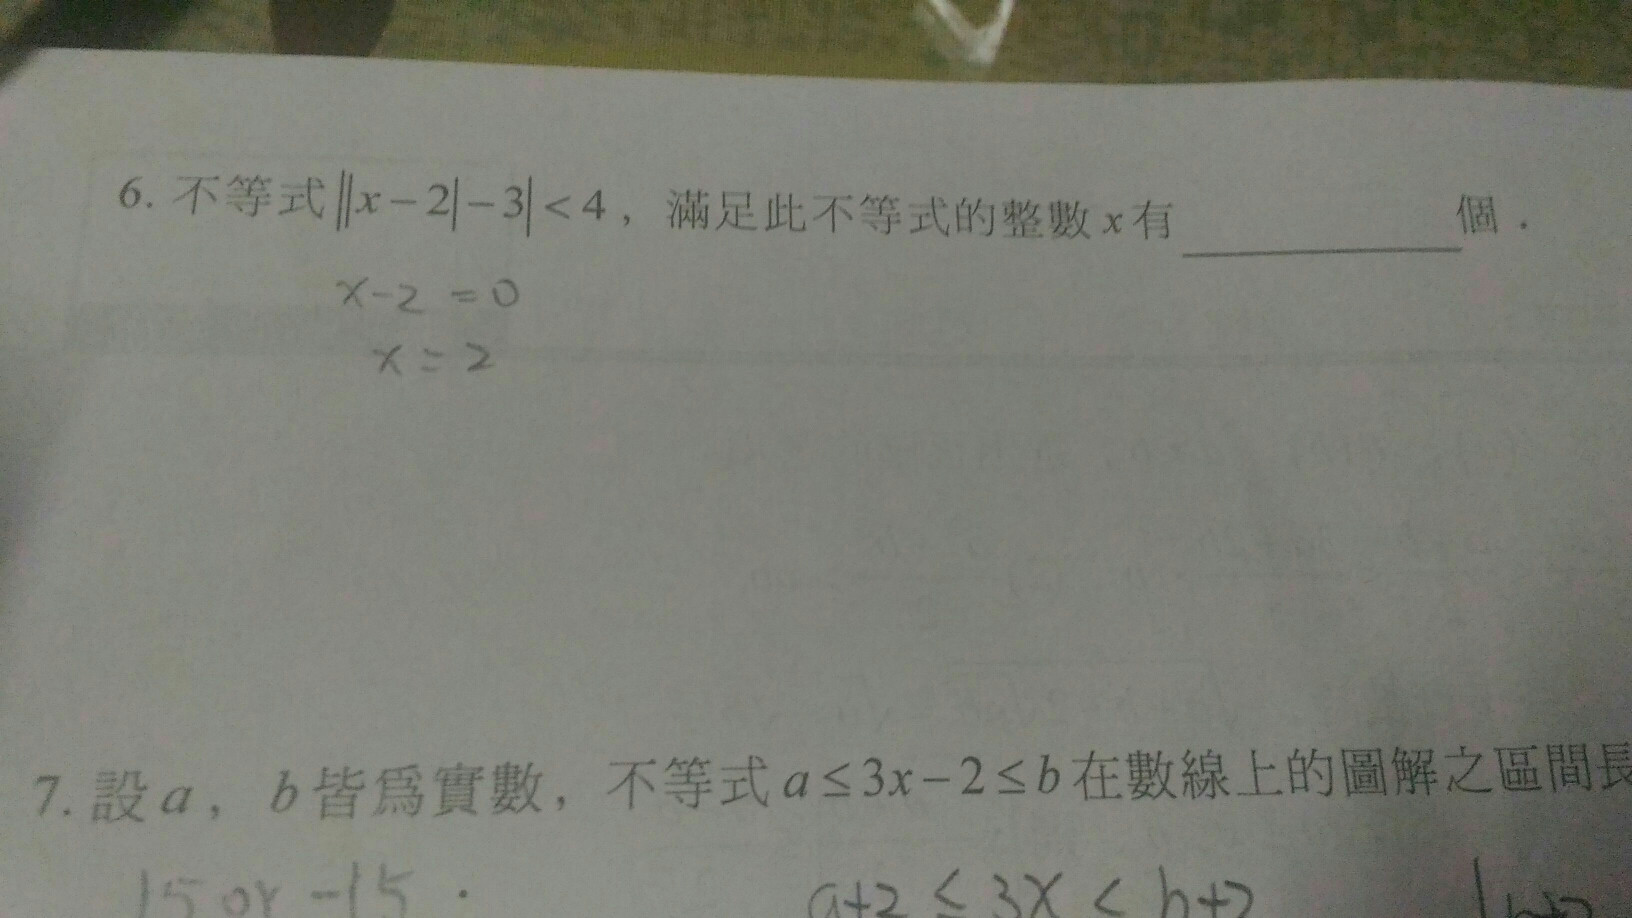 6. 不等式||x-2|-3|<4，滿足此不等式的整數 x 有________個．
x-2 =0
x=2
7. 設 a，b 皆爲實數，不等式 a≤3x-2≤b 在數線上的圖解之區間長
15 or -15 .
a+2 ≤ 3x < b+2